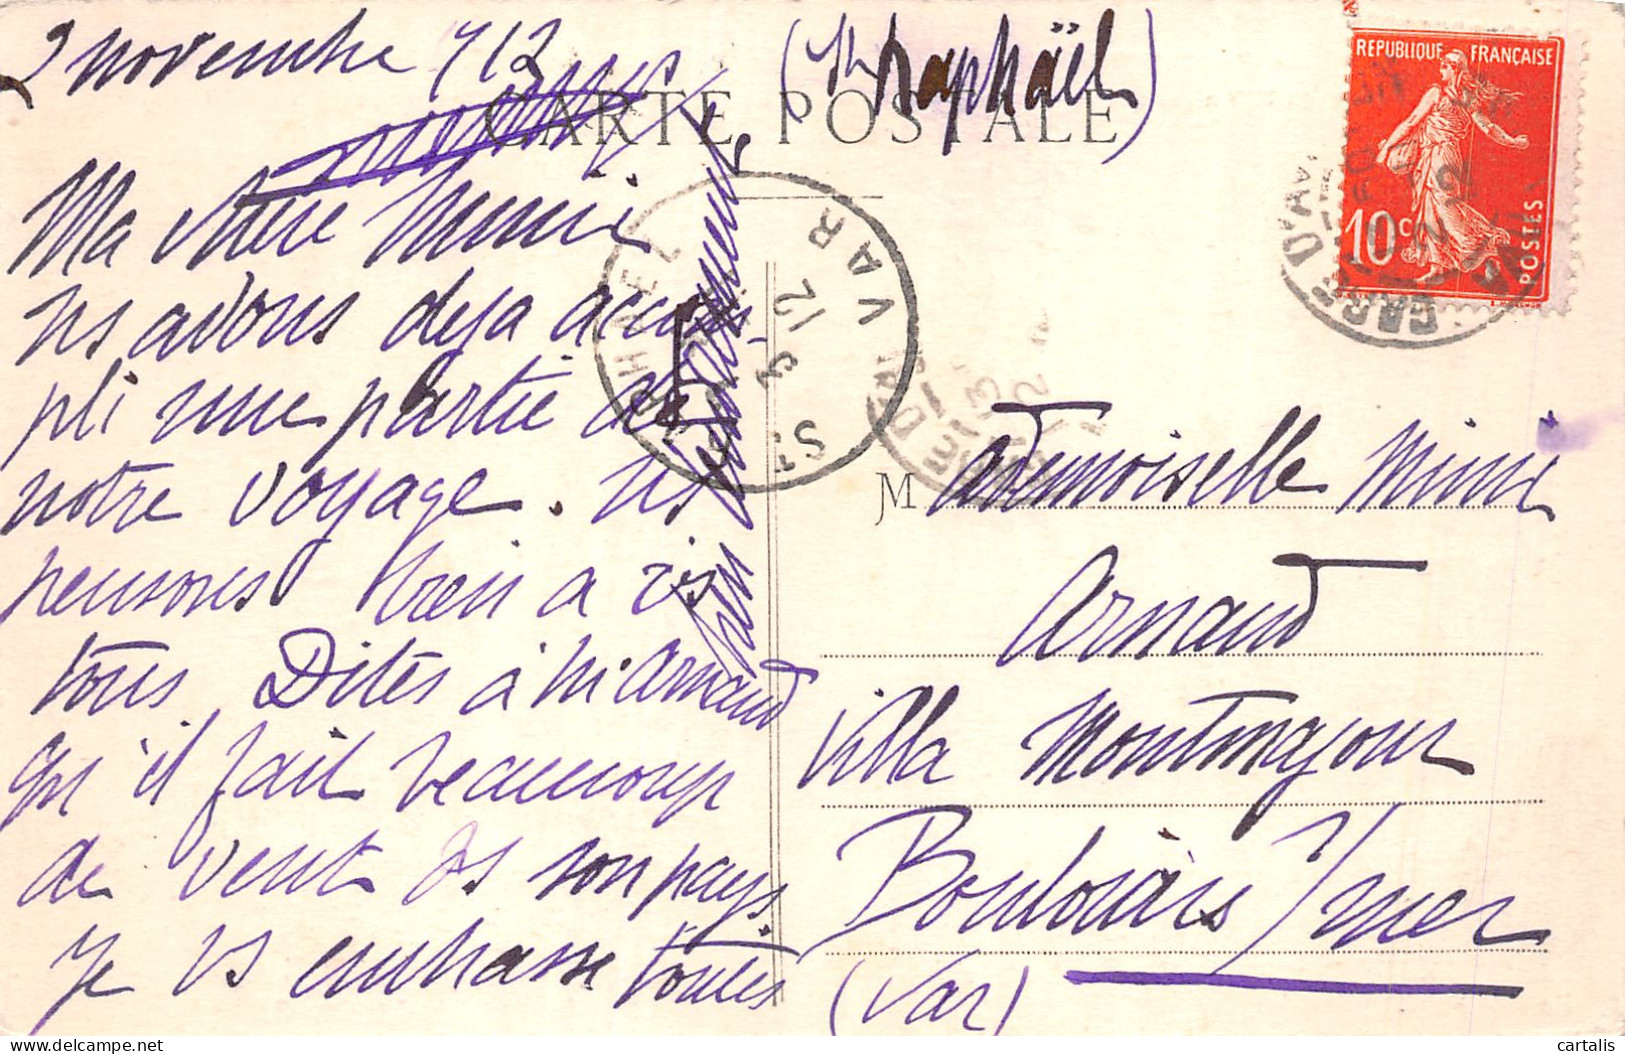 2 novembre 912 (St Raphaël)
CARTE POSTALE
Ma chère Mimi
ns avons deja accom-
pli une partie de
notre voyage. ns
pensons bien a vs
tous Dites à M Arnaud
qu'il fait beaucoup
de vent ds son pays.
Je vs embrasse toutes
REPUBLIQUE FRANÇAISE
10c
POSTES
ST RAPHAEL
3 12
VAR
Mademoiselle Mimi
Arnaud
Villa Montmajour
Boulouris s/mer
(Var)
cartalis